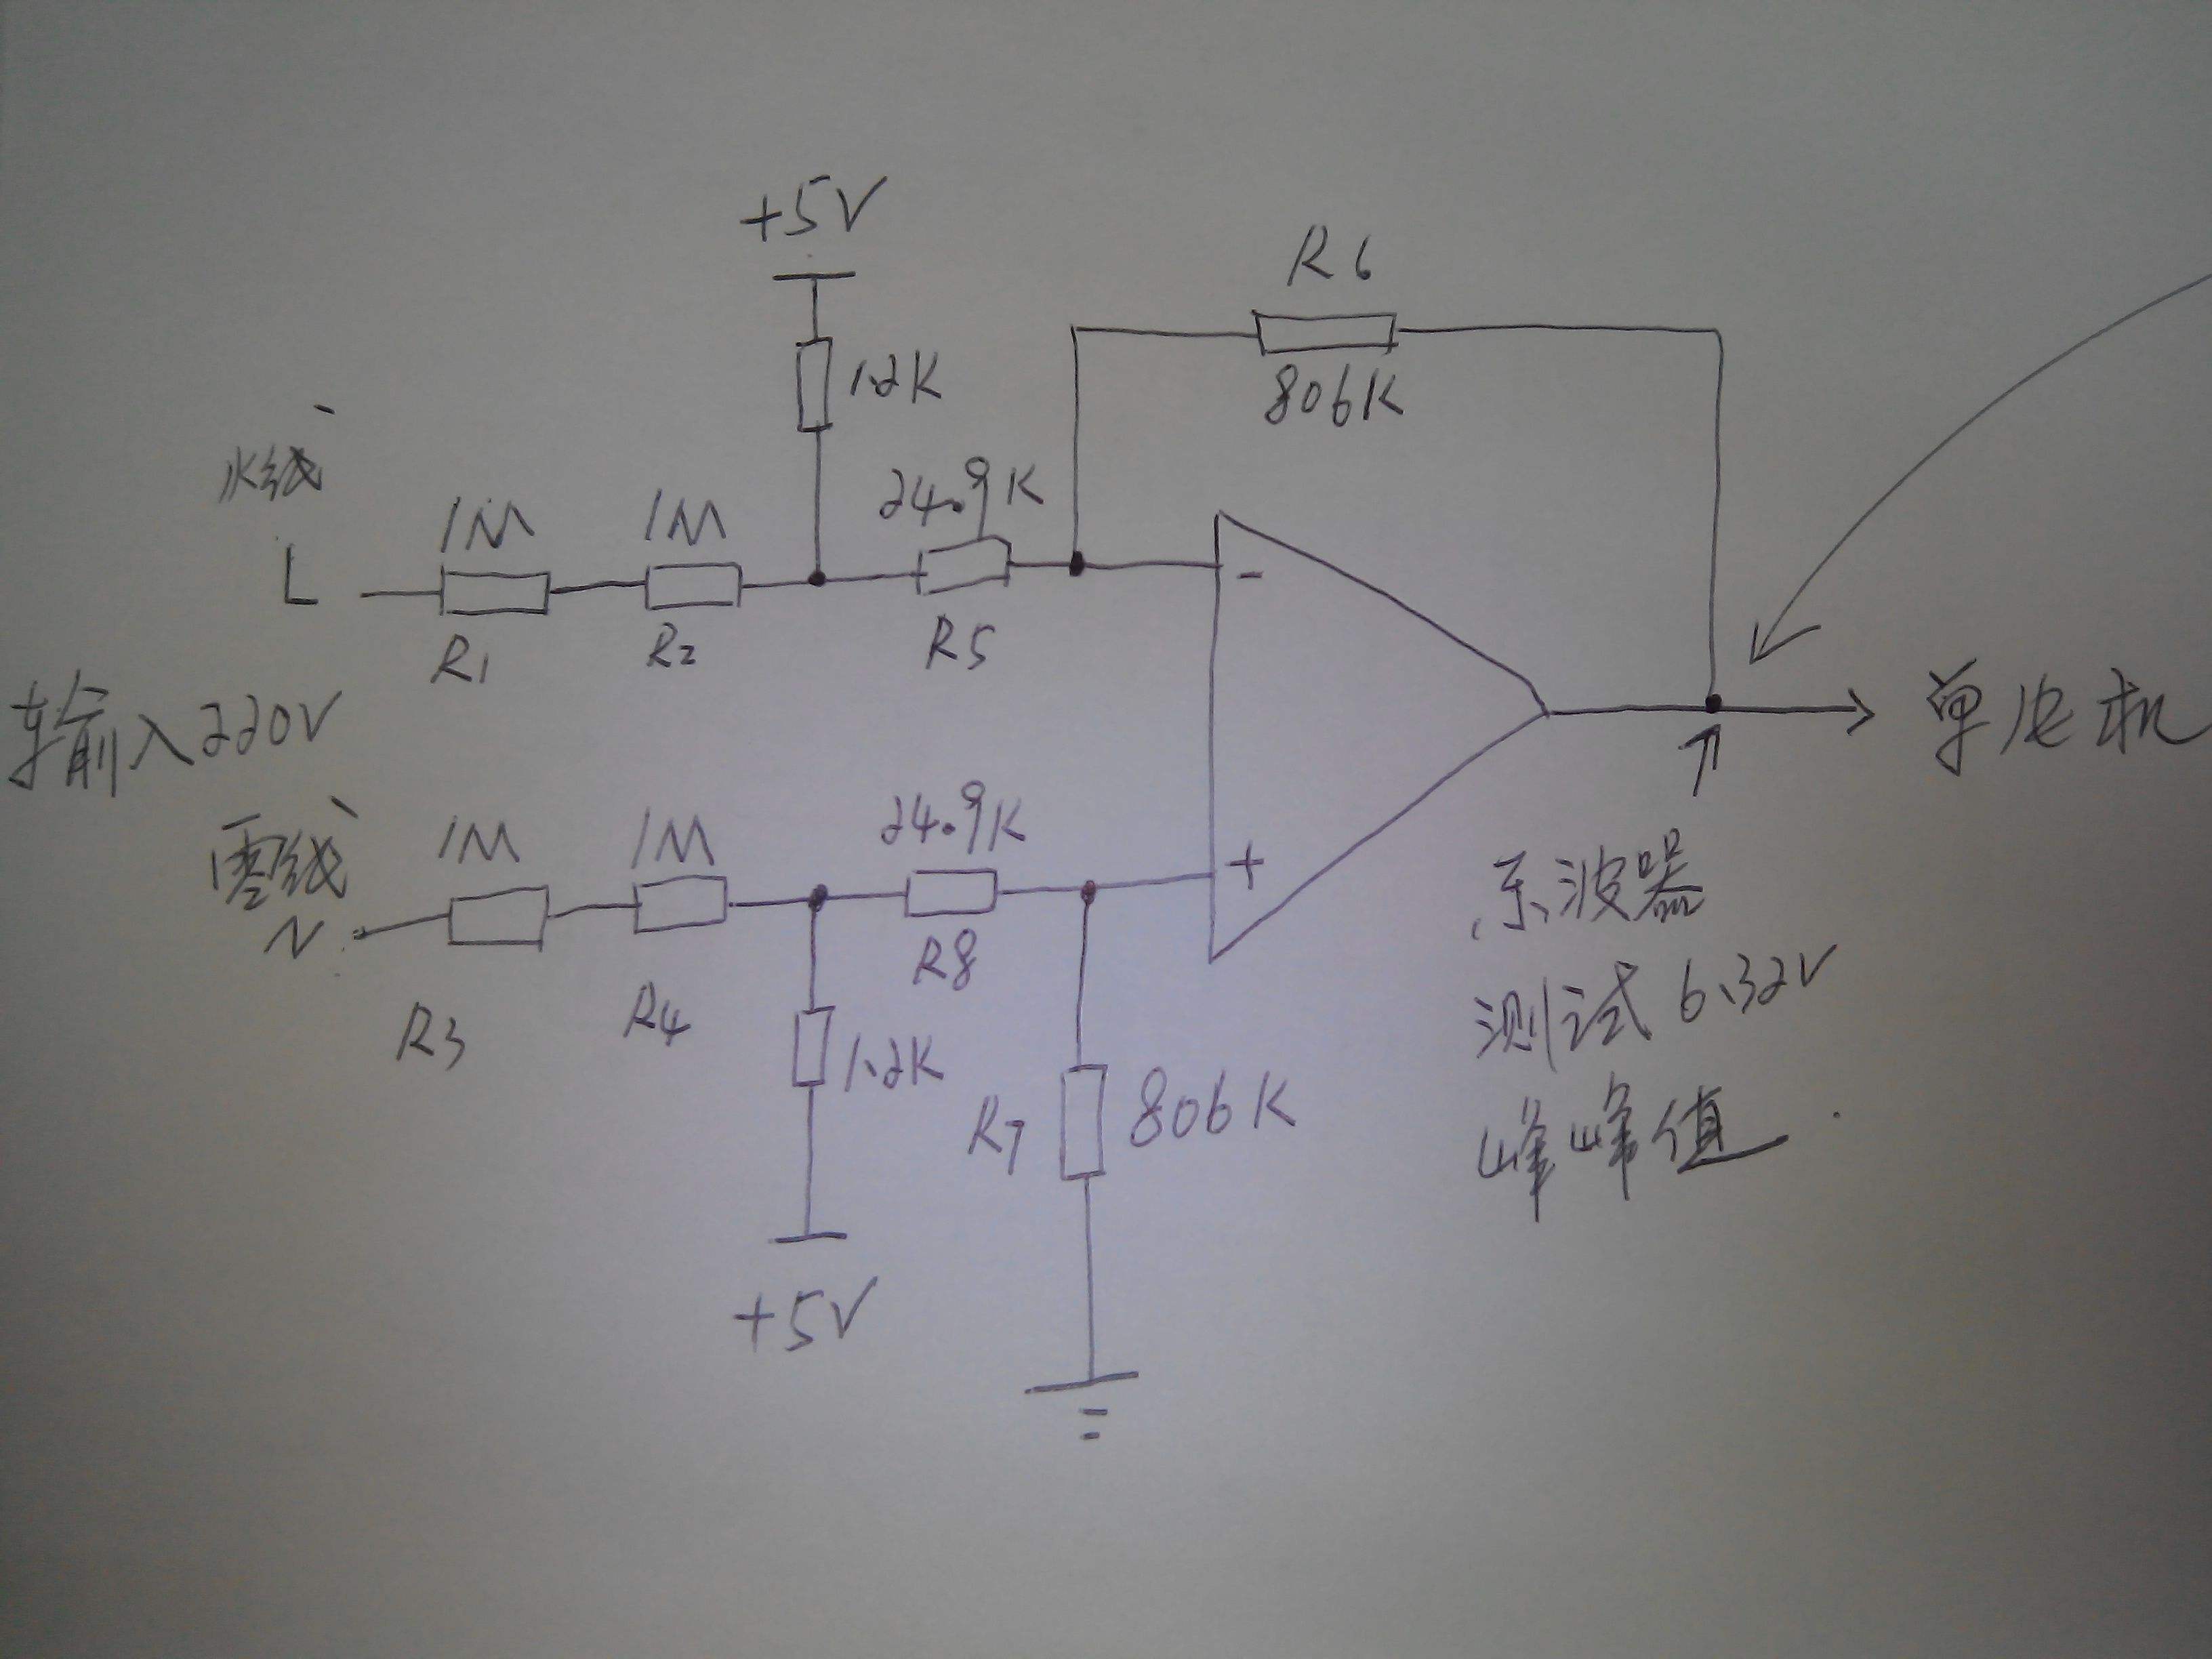 +5V
R6
1.2K
806K
火线
24.9K
1M
1M
L
-
R1
R2
R5
输入220V
单片机
零线
1M
1M
24.9K
+
N
R8
示波器
R3
R4
1.2K
测试6.32V
R7
806K
峰峰值
+5V